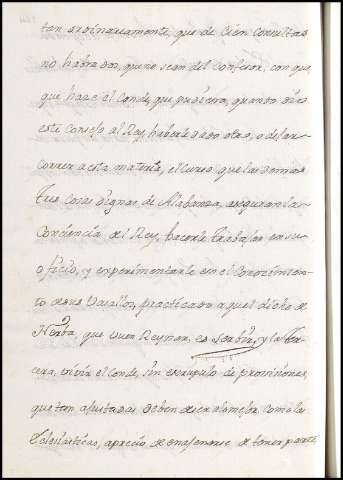 tan ordinariamente, que de Cien Consultas
no habra dos, que no sean del Confesor, con que
que hace el Conde, que pudiera, quando dio
este Consejo al Rey, haberle dado otro, o dejar
correr a esta materia, el Curso que las demas
tres cosas dignas de Alabanza, aseguran la
Conciencia del Rey, hacerle trabajar en su
oficio, y experimentarle en el Conocimien-
to de sus Vasallos, practicado aquel dicho de
que buen Reynar, es servir, y la ter-
cera, vivir el Conde, sin escrupulo de provisiones,
que tan ajustadas deben ser como las
Eclesiasticas, aprecio de no tener parte